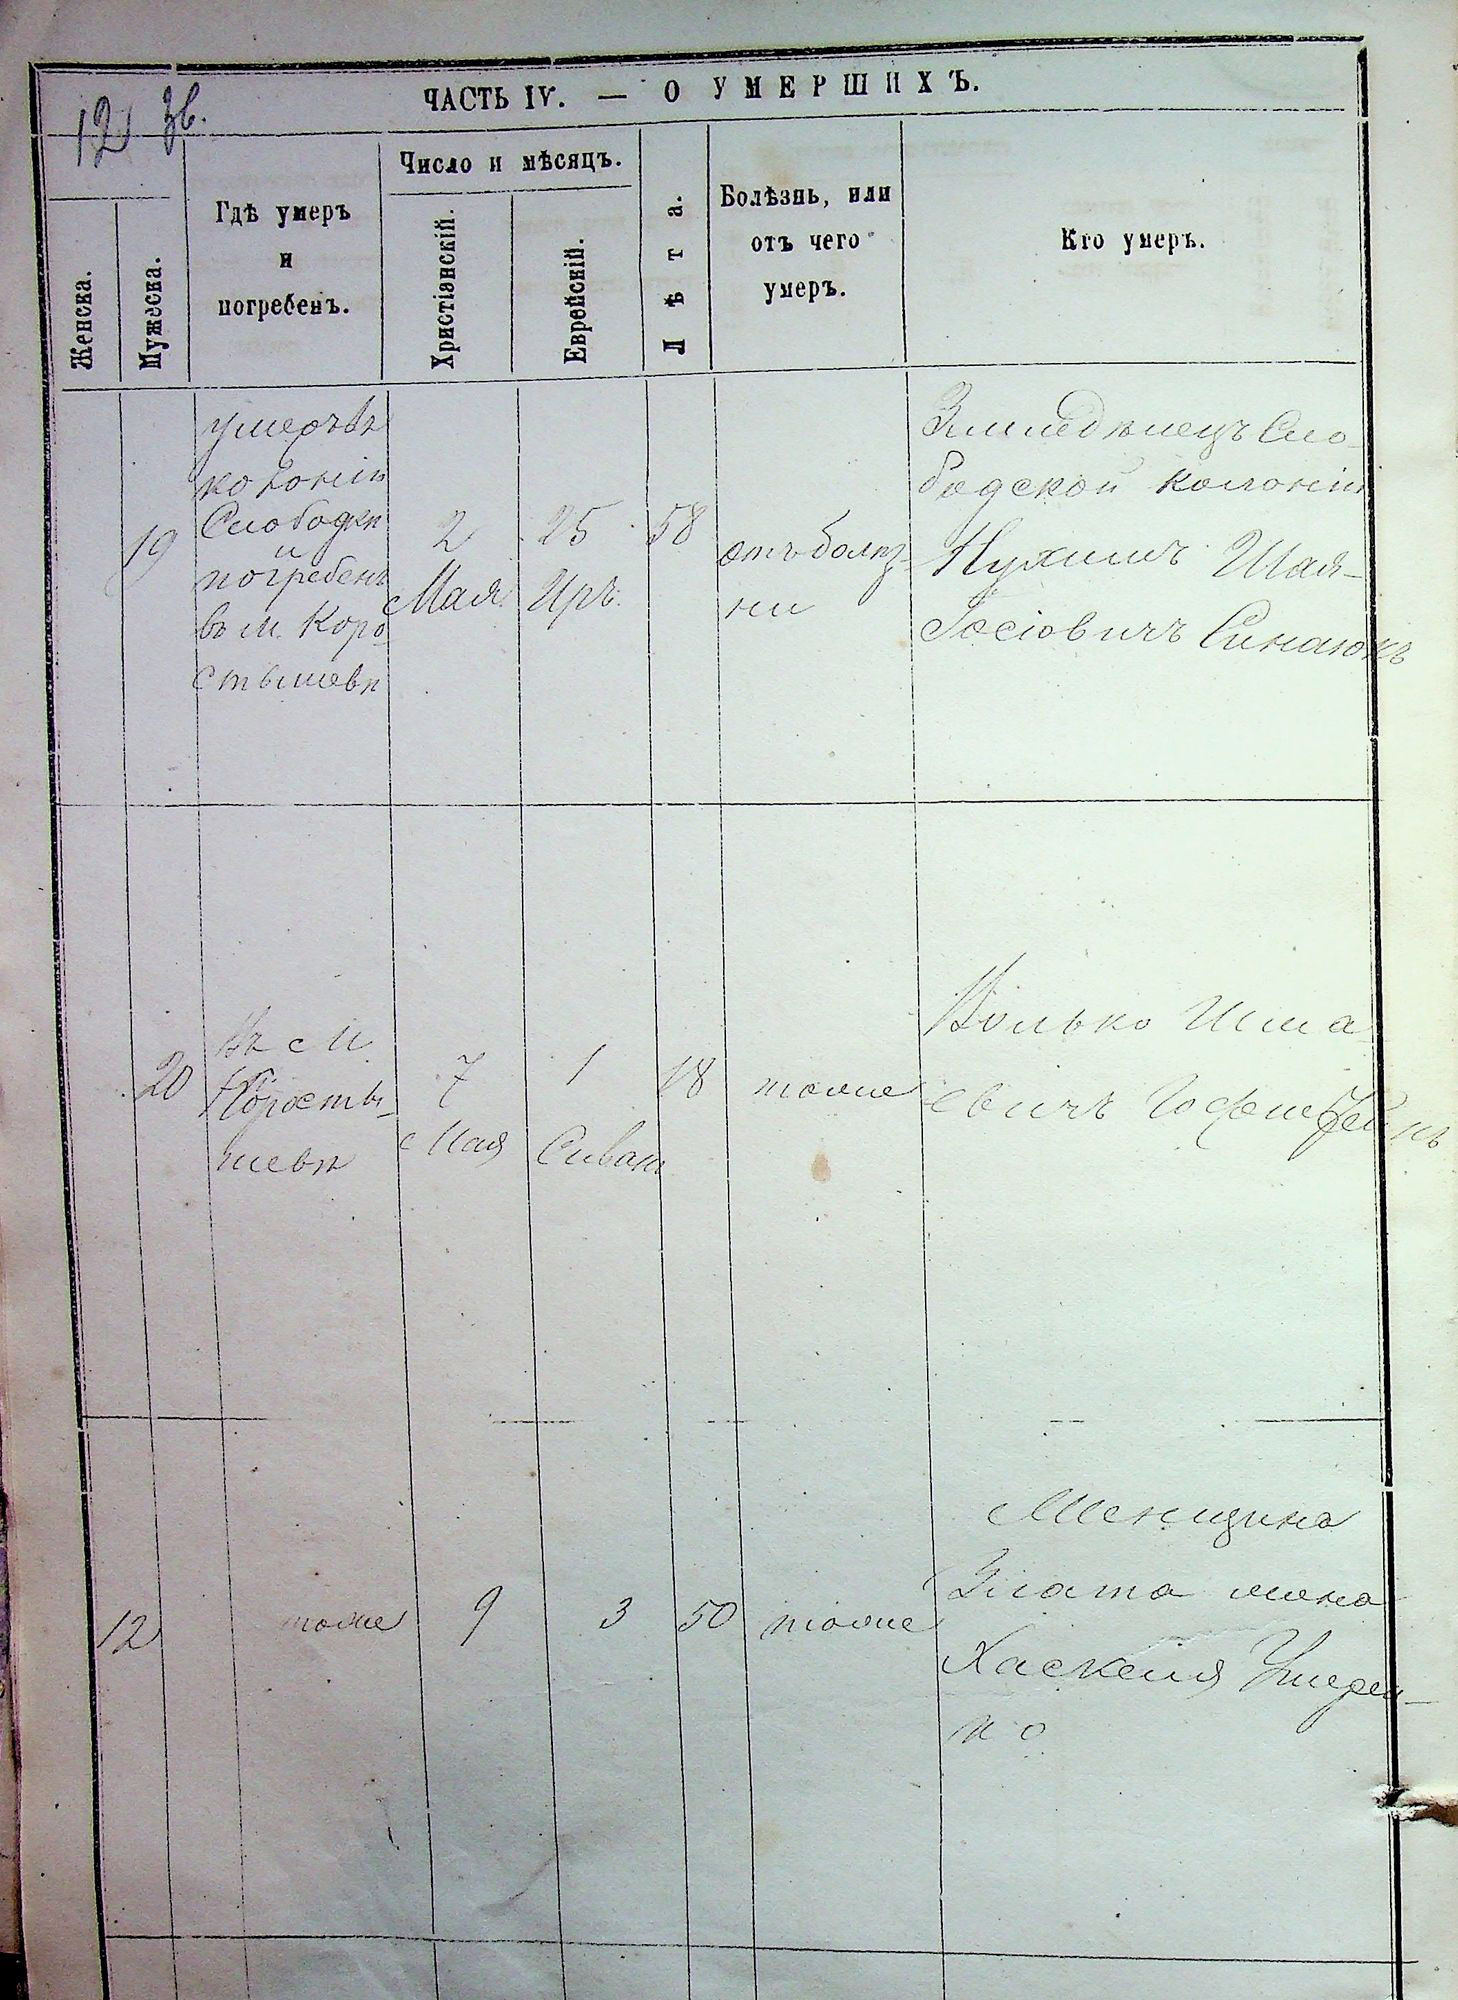 12 зв.
ЧАСТЬ IV. — О УМЕРШИХЪ.
Женска.
Мужеска.
Гдѣ умеръ
и
погребенъ.
Число и мѣсяцъ.
Христіянскій.
Еврейскій.
Лѣта.
Болѣзнь, или
отъ чего
умеръ.
Кто умеръ.
19
умеръ въ
колоніи
Слободки
и
погребенъ
въ м. Коро-
стышевѣ
2
Мая
25
Иръ
58
отъ болѣз-
ни
Земледѣлецъ Сло-
бодской колоніи
Нухимъ Шая-
Іосіовичъ Синаюкъ
20
въ м.
Коросты-
шевѣ
7
Мая
1
Сиванъ
18
тоже
Волько
евичъ
12
тоже
9
3
50
тоже
Злата жена
Хаскеля
ко